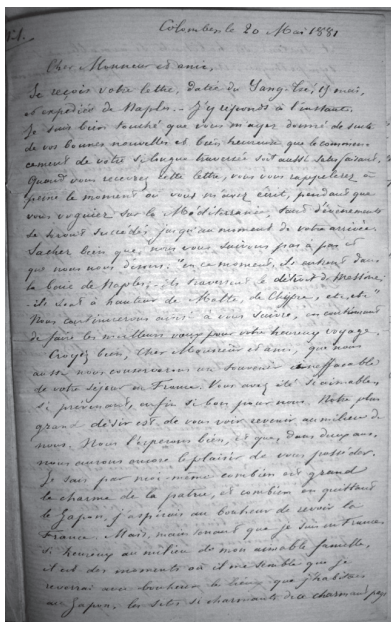 Colombes, le 20 Mai 1881
Cher Monsieur et ami,
Je reçois votre lettre, datée du Yang-tsé, 15 mai,
et expédiée de Naples. J'y réponds à l'instant.
Je suis bien touché que vous m'ayez donné de suite
de vos bonnes nouvelles et bien heureux que le commen-
cement de votre si longue traversée soit aussi satisfaisant.
Quand vous recevrez cette lettre, vous vous rappellerez à
peine le moment où vous m'avez écrit, pendant que
vous voguiez sur la Méditerranée, tant d'événements
se seront succédés jusqu'au moment de votre arrivée.
Sachez bien que nous vous suivons pas à pas et
que nous nous disons: "en ce moment, ils entrent dans
la baie de Naples, ils traversent le détroit de Messine,
ils sont à hauteur de Malte, de Chypre, etc, etc."
Nous continuerons ainsi à vous suivre, en continuant
de faire les meilleurs vœux pour votre heureux voyage.
Croyez bien, cher Monsieur et ami, que nous
nous conserverons un souvenir ineffaçable
de votre séjour en France. Vous avez été si aimable,
si prévenant, enfin si bon pour nous. Notre plus
grand désir est de vous voir revenir au milieu de
nous. Nous l'espérons bien, et que, dans deux ans,
nous aurons encore le plaisir de vous posséder.
Je sais par moi-même combien est grand
le charme de la patrie, et combien en quittant
le Japon, j'aspirais au bonheur de revoir la
France. Mais, maintenant que je suis en France
si heureux au milieu de mon aimable famille,
il est des moments où il me semble que je
reverrai avec bonheur le que j'habitais
au Japon, les sites si charmants de ce charmant pays